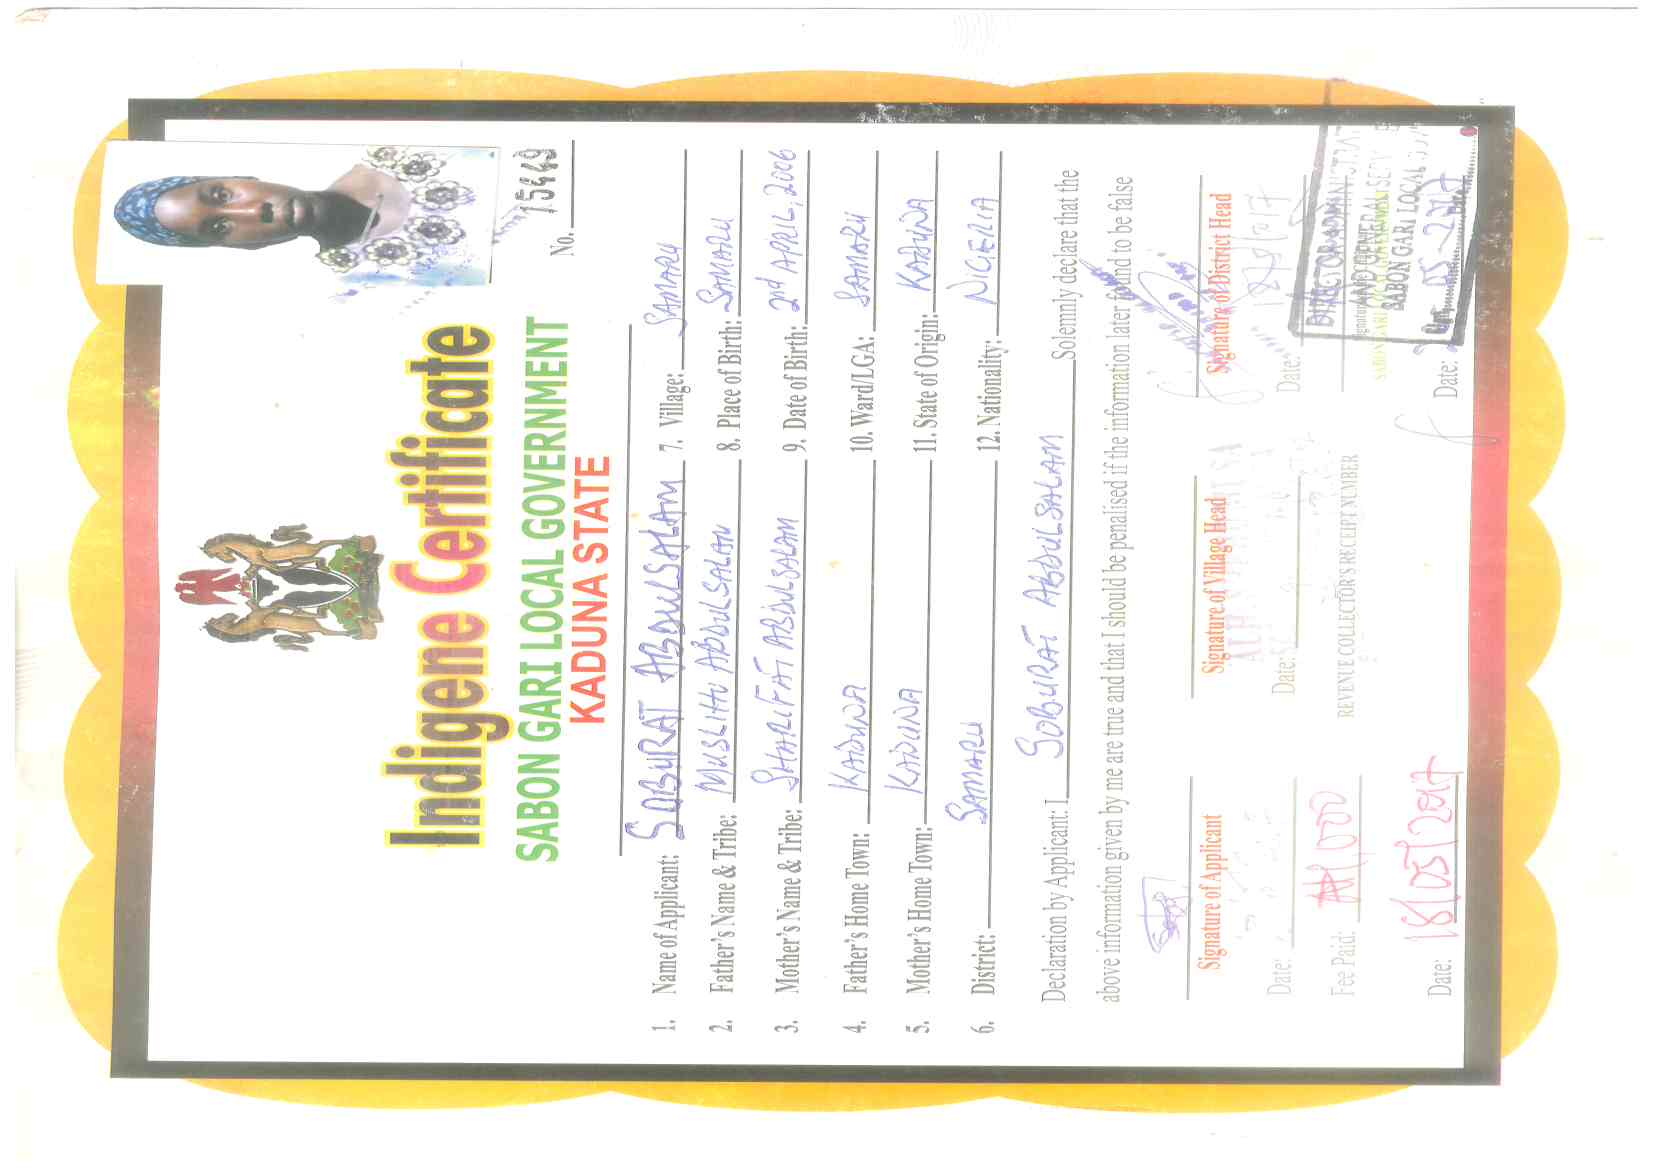 No. 15449
Indigene Certificate
SABON GARI LOCAL GOVERNMENT
KADUNA STATE
1. Name of Applicant: SOBURAT ABDULSALAM 7. Village: SAMARU
2. Father's Name & Tribe: MUSLIHU ABDULSALAM 8. Place of Birth: SAMARU
3. Mother's Name & Tribe: SHARIFAT ABDULSALAM 9. Date of Birth: 2nd APRIL, 2006
4. Father's Home Town: KADUNA 10. Ward/LGA: SAMARU
5. Mother's Home Town: KADUNA 11. State of Origin: KADUNA
6. District: SAMARU 12. Nationality: NIGERIA
Declaration by Applicant: I SOBURAT ABDULSALAM Solemnly declare that the
above information given by me are true and that I should be penalised if the information later found to be false
Signature of Applicant Signature of Village Head Signature of District Head
Date: Date: Date:
Fee Paid: ₦1,000 REVENUE COLLECTOR'S RECEIPT NUMBER
DIRECTOR ADMINISTRAT
AND GENERAL SEV
SABON GARI LOCAL
Date: 18/05/2017 Date: